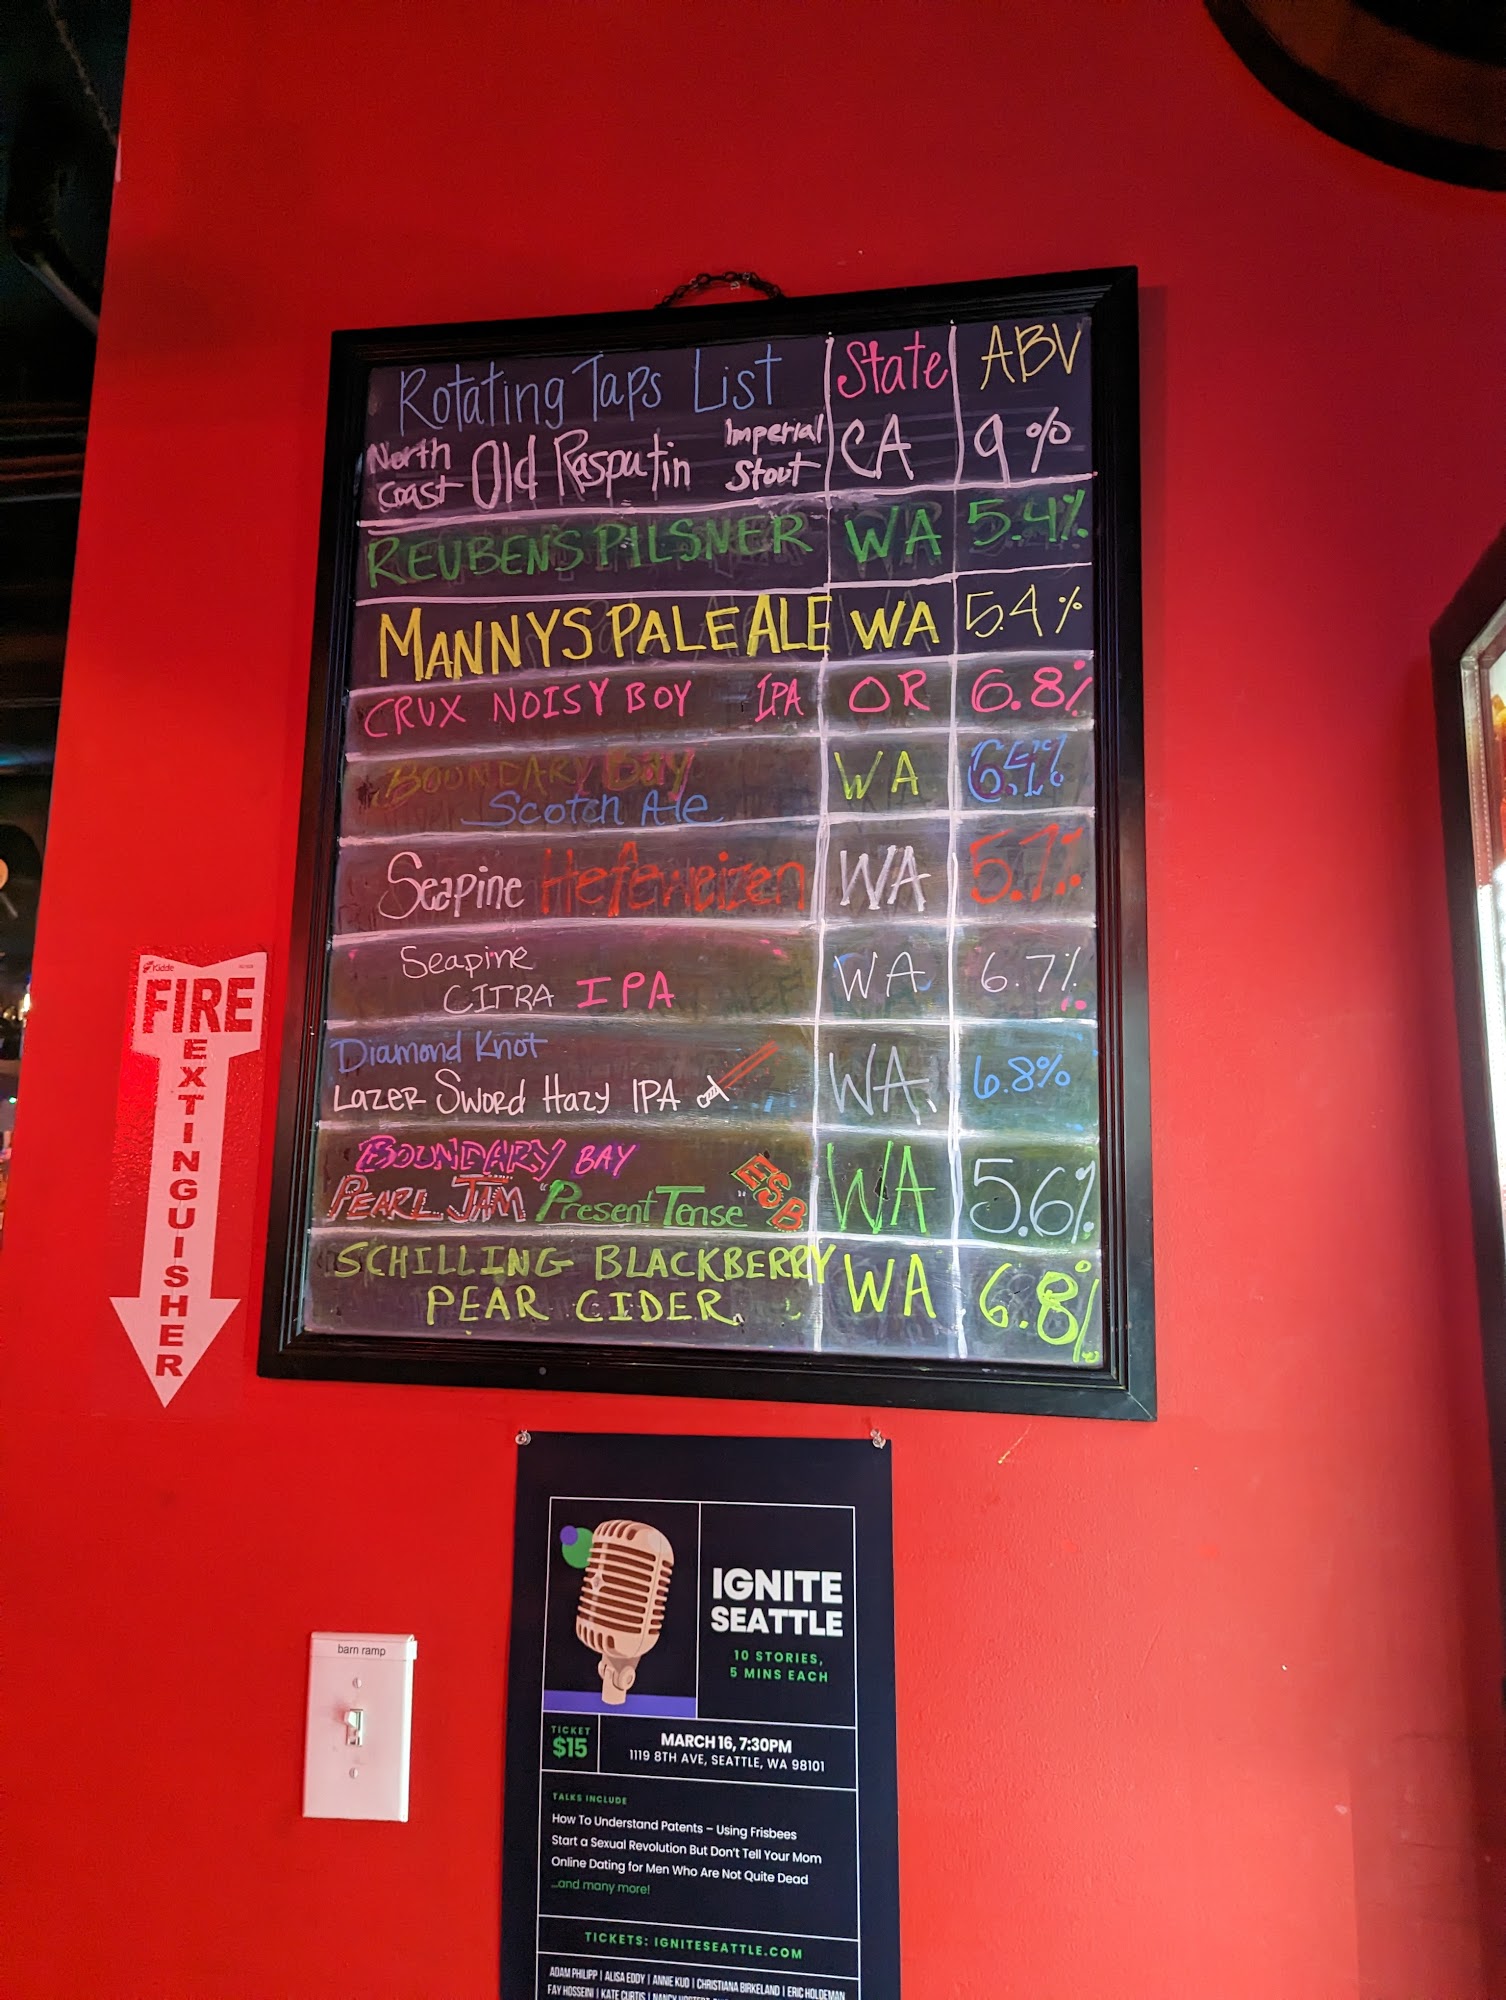 Rotating Taps List State ABV
North Coast Old Rasputin Imperial Stout CA 9%
REUBENS PILSNER WA 5.4%
MANNYS PALE ALE WA 5.4%
CRUX NOISY BOY IPA OR 6.8%
BOUNDARY Bay
Scotch Ale WA
Seapine Hefeweizen WA 5.7%
Seapine
CITRA IPA WA 6.7%
Diamond Knot
LAZER SWORD HAZY IPA WA 6.8%
BOUNDARY BAY
PEARL JAM "Present Tense" ESB WA 5.6%
SCHILLING BLACKBERRY
PEAR CIDER WA 6.8%
Kidde
FIRE
EXTINGUISHER
barn ramp
IGNITE
SEATTLE
10 STORIES,
5 MINS EACH
TICKET
$15
MARCH 16, 7:30PM
1119 8TH AVE, SEATTLE, WA 98101
TALKS INCLUDE
How To Understand Patents – Using Frisbees
Start a Sexual Revolution But Don't Tell Your Mom
Online Dating for Men Who Are Not Quite Dead
...and many more!
TICKETS: IGNITESEATTLE.COM
ADAM PHILIPP | ALISA EDDY | ANNIE KUO | CHRISTIANA BIRKELAND | ERIC HOLDEMAN
FAY HOSSEINI | KATE CURTIS |